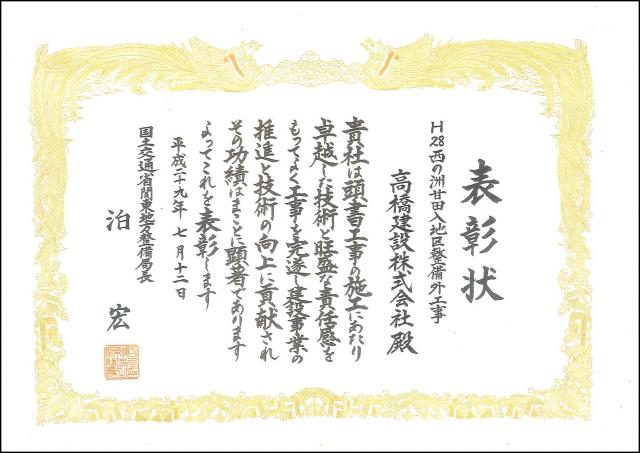 表彰状
H28西の洲甘田入地区整備外工事
高橋建設株式会社殿
貴社は頭書工事の施工にあたり
卓越した技術と旺盛な責任感を
もってよく工事を完遂し建設事業の
推進と技術の向上に貢献され
その功績はまことに顕著であります
よってこれを表彰します
平成二十九年七月十二日
国土交通省関東地方整備局長
泊宏